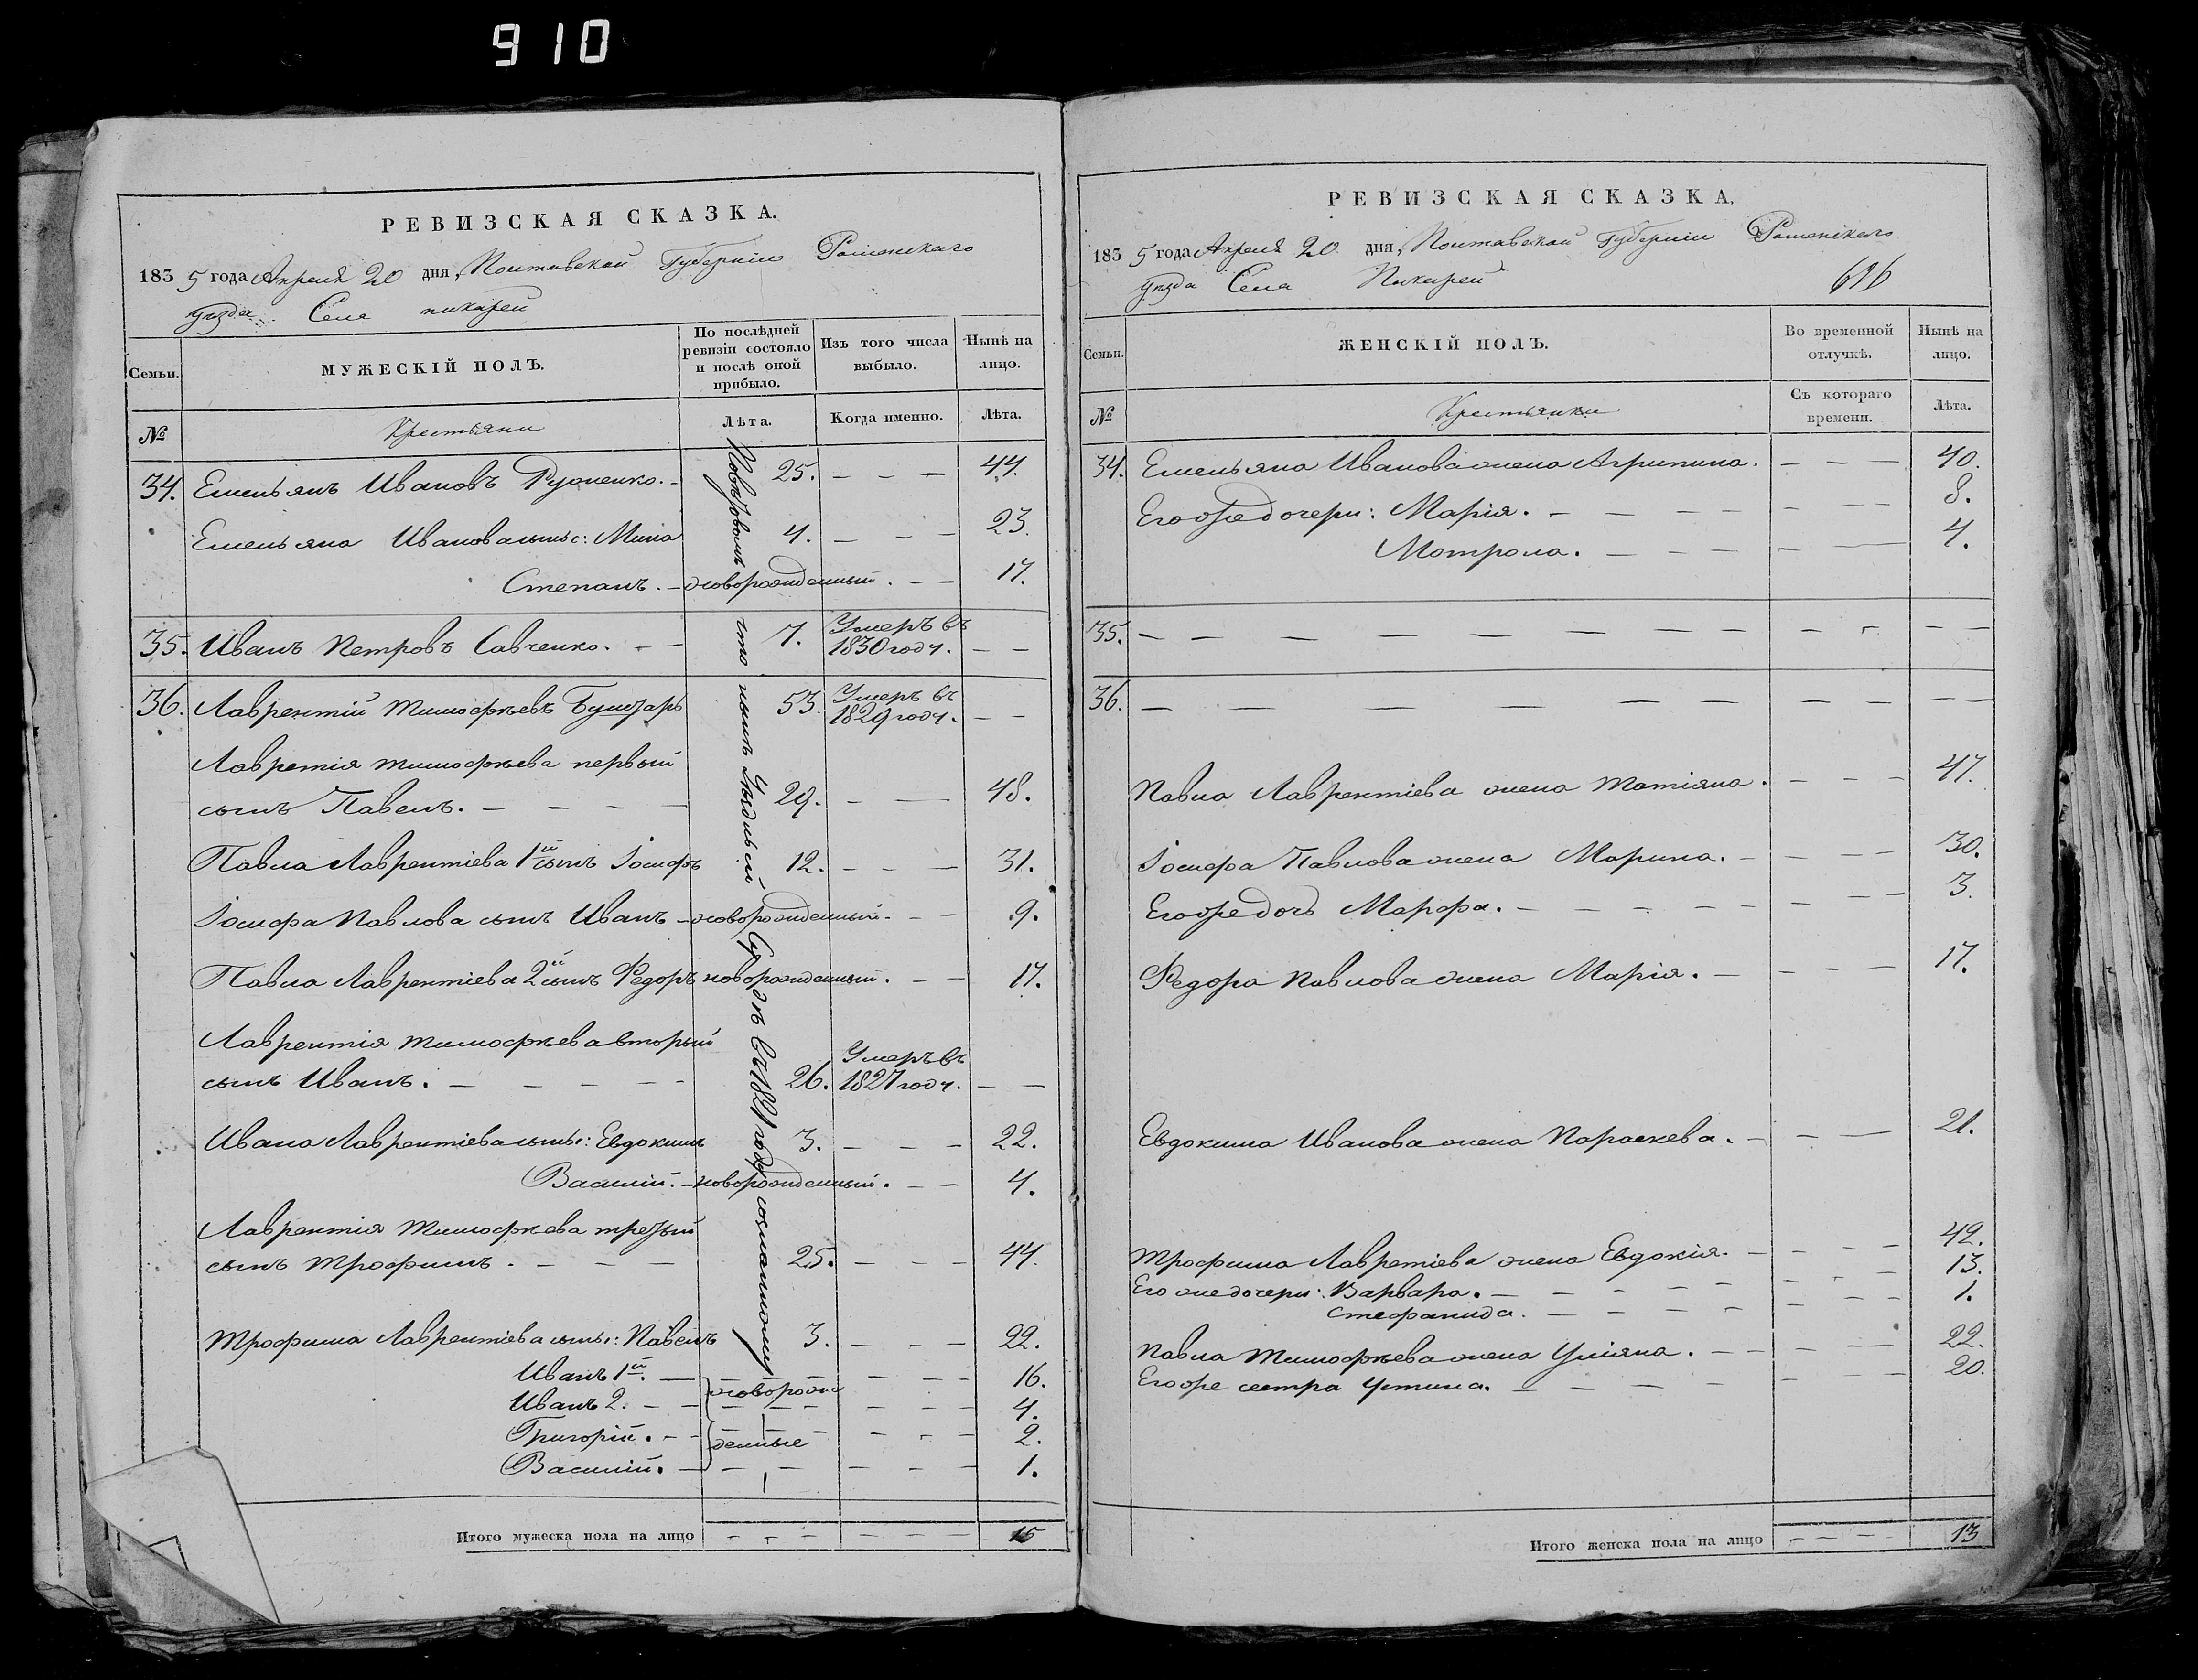 910
РЕВИЗСКАЯ СКАЗКА.
1835 года Апреля 20 дня, Полтавской Губерніи Роменскаго
уезда Села пикарей
Семьи.
МУЖЕСКІЙ ПОЛЪ.
По послѣдней ревизіи состояло и послѣ оной прибыло.
Изъ того числа выбыло.
Нынѣ на лицо.
№
Крестьяни
Лѣта.
Когда именно.
Лѣта.
34. Емельянъ Ивановъ 25. – – – 44.
Емельяна Иванова сыны: Мина 4. – – – 23.
Степанъ. – новорожденный. – – 17.
35. Иванъ Петровъ Савченко. – – 7. Умеръ въ 1830 году. – –
36. Лаврентій Тимофѣевъ 53. Умеръ въ 1829 году. – –
Лавретія Тимофѣева первый
сынъ Павелъ. – – – – 29. – – 48.
Павла Лаврентіева 1й сынъ Іосифъ 12. – – – 31.
Іосифа Павлова сынъ Иванъ – новорожденный. – – 9.
Павла Лаврентіева 2й сынъ Федоръ новорожденный. – – 17.
Лаврентія Тимофѣева вторый
сынъ Иванъ. – – – – – 26. Умеръ въ 1827 году. – –
Ивана Лаврентіева сыны: Евдокимъ 3. – – – 22.
Василій. – новорожденный. – – 4.
Лаврентія Тимофѣева третый
сынъ Трофимъ. – – – 25. – – – 44.
Трофима Лаврентіева сыны: Павелъ 3. – – – 22.
Иванъ 1й. – – – – – 16.
Иванъ 2. – – новорож – – – 4.
Григорій. – – – – – 2.
Василій. – денные – – – 1.
Итого мужеска пола на лицо – – – – – – – 15
что нынѣ въ 1821 году
РЕВИЗСКАЯ СКАЗКА.
1835 года Апреля 20 дня, Полтавской Губерніи Роменскаго
уезда Села Пикарей
616
Семьи.
ЖЕНСКІЙ ПОЛЪ.
Во временной отлучкѣ.
Нынѣ на лицо.
№
Крестьянки
Съ котораго времени.
Лѣта.
34. Емельяна Иванова жена Агрипина. – – – 40.
Его же дочери: Марія. – – – – – – – 8.
Мотрона. – – – – – – 4.
35. – – – – – – – – – – –
36. – – – – – – – – –
Павла Лаврентіева жена Татіяна. – – – 47.
Іосифа Павлова жена Марина. – – – – 30.
Его же дочь Марфа. – – – – – – – 3.
Федора Павлова жена Марія. – – – – 17.
Евдокима Иванова жена Параскева. – – – 21.
Трофима Лавретіева жена Евдокія. – – – – 42.
Его же дочери: Варвара. – – – – – – – 13.
Стефанида. – – – – – – – 1.
Павла Тимофѣева жена Уліяна. – – – – – 22.
Его же сестра Устина. – – – – – – 20.
Итого женска пола на лицо – – – – 13